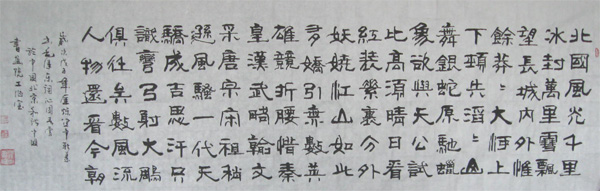 北國風光千里
冰封萬里雪飄
望長城內外惟
餘莽〻大河上
下頓失滔〻山
舞銀蛇原馳蠟
象欲與天公試
比高須晴日看
紅裝素裹分外
妖嬈江山如此
多嬌引無數英
雄競折腰惜秦
皇漢武略輸文
采唐宗宋祖稍
遜風騷一代天
驕成吉思汗只
識彎弓射大鵰
俱往矣數風流
人物還看今朝
歲次戊子年
毛澤東詞沁園春雪
於中國北京